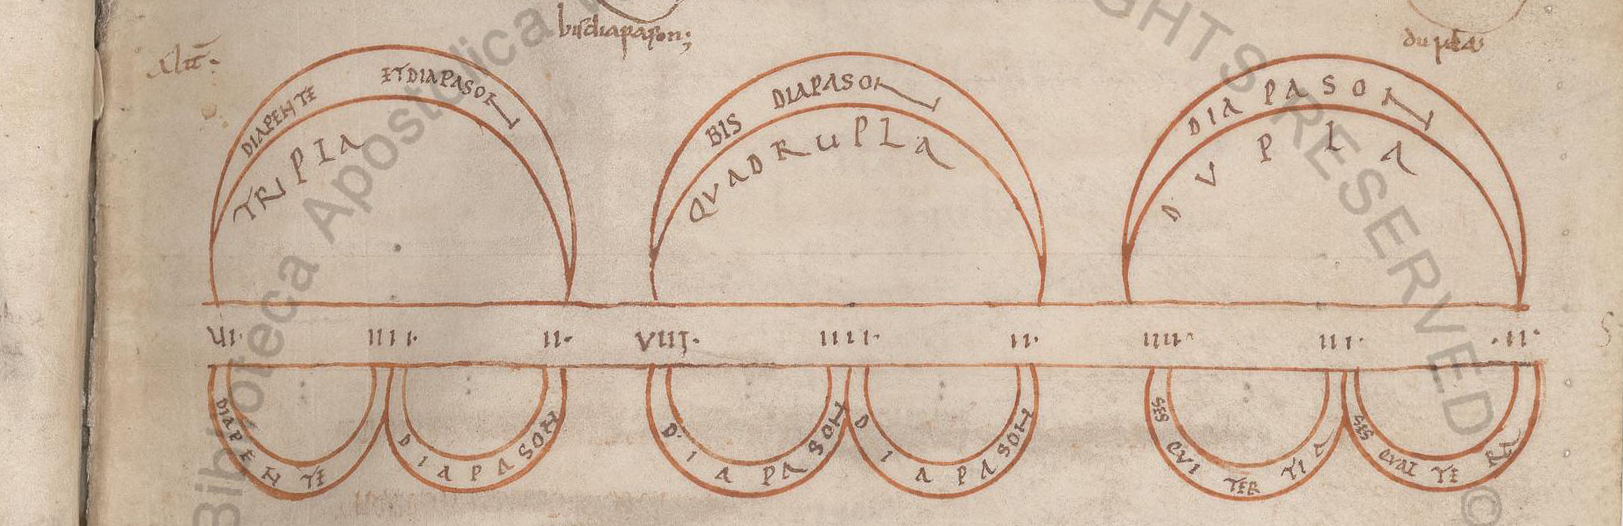 bisdiapason;
dupla
DIAPENTE ET DIAPASON
TRIPLA
BIS DIAPASON
QUADRUPLA
DIAPASON
DVPLA
VI· IIII· II·
VIII· IIII· II·
IIII· III· ·II·
DIAPENTE
DIAPASON
D·IAPASON
DIAPASON
SES QUI TER TIA
Biblioteca Apostolica
GHTS RESERVED
©